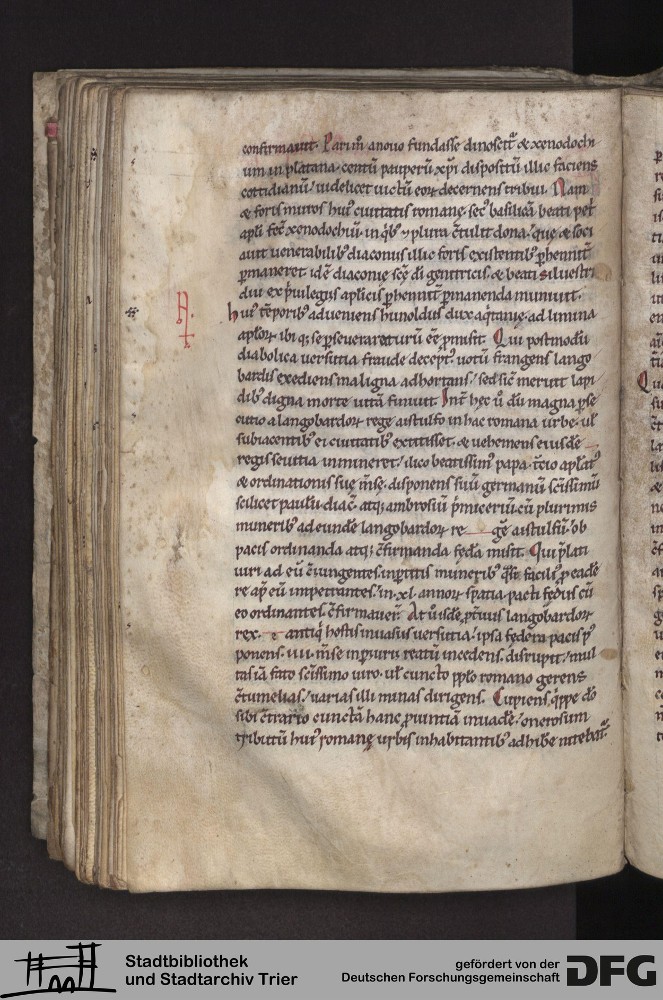 confirmauit. Parim̄ anouo fundasse dinoscit᷑ & xenodochi
um in platana. centū pauperū xp̄i dispositū illic faciens
cottidianū. uidelicet uictū eoꝝ decernens tribui. Nam
& foris muros hui᷒ ciuitatis romanę. sec᷒ basilicā beati pet̄
apl̄i fec̄ xenodochiū. in q̇b᷒ & plura c̄tulit dona. que & soci
auit uenerabilib᷒ diaconus illic foris existentib᷒ ꝑhenniť
ꝑmaneret idē diaconię scę̄ dī genitricis. & beati siluestri
diu ex p̄uilegiis apl̄icis ꝑhenniť ꝑmanenda muniuit.
A.
hui᷒ tēporib᷒ adueniens hunoldus dux aq̇tanię. ad limina
apl̄oꝝ ibi q; se ꝑseueraturū eē ꝓmisit. Qui postmodū
diabolica uersutia fraude decept᷒. uotū frangens lango
bardis exediens maligna adhortans. sed sic̄ meruit lapi
dib᷒ digna morte uitā finiuit. Int̄ hęc u̇ dū magna ꝑse
cutio a langobardoꝝ rege aistulfo in hac romana urbe. uł
subiacentib᷒ ei ciuitatib᷒ extitisset. & uehemens eiusdē
regis seuitia inmineret. ilico beatissim᷒ papa. t̄cio apl̄at᷒
& ordinationis suę m̄se. disponens suū germanū sc̄issimū
scilicet paulū diac̄. atq; ambrosiū p̄miceriū. cū plurimis
munerib᷒ ad eundē langobardoꝝ re gē aistulfū. ob
pacis ordinanda atq; c̄firmanda fędа misit. Qui p̄lati
uiri ad eū c̄iungentes. inp̄titis munerib᷒ q̇si facili᷒ ꝓ eadē
re ap̄ eū impetrantes. in .xl. annoꝝ spatia. pacti fędus cū
eo ordinantes. c̄firmauer̄. At u̇ isdē ꝓteruus langobardoꝝ
rex. antiq̇ hostis inuasus uersutia. ipsa fędera pacis p᷒
ponens. iiii. m̄se in ꝑiurii reatū incedens. disrupit. mul
tas iā fato sc̄issimo uiro. uł cuncto ppl̄o romano gerens
c̄tumelias. uarias illi minas dirigens. Cupiens q̇ppe dō
sibi c̄trario cunctā hanc ꝓuintiā inuadē. onerosum
tributū hui᷒ romanę urbis inhabitantib᷒ adhibē nitebat᷑.
Stadtbibliothek
und Stadtarchiv Trier
gefördert von der
Deutschen Forschungsgemeinschaft
DFG